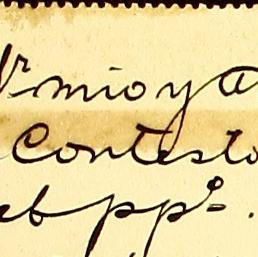 Sr mio y a
Contesto
eb ppº.